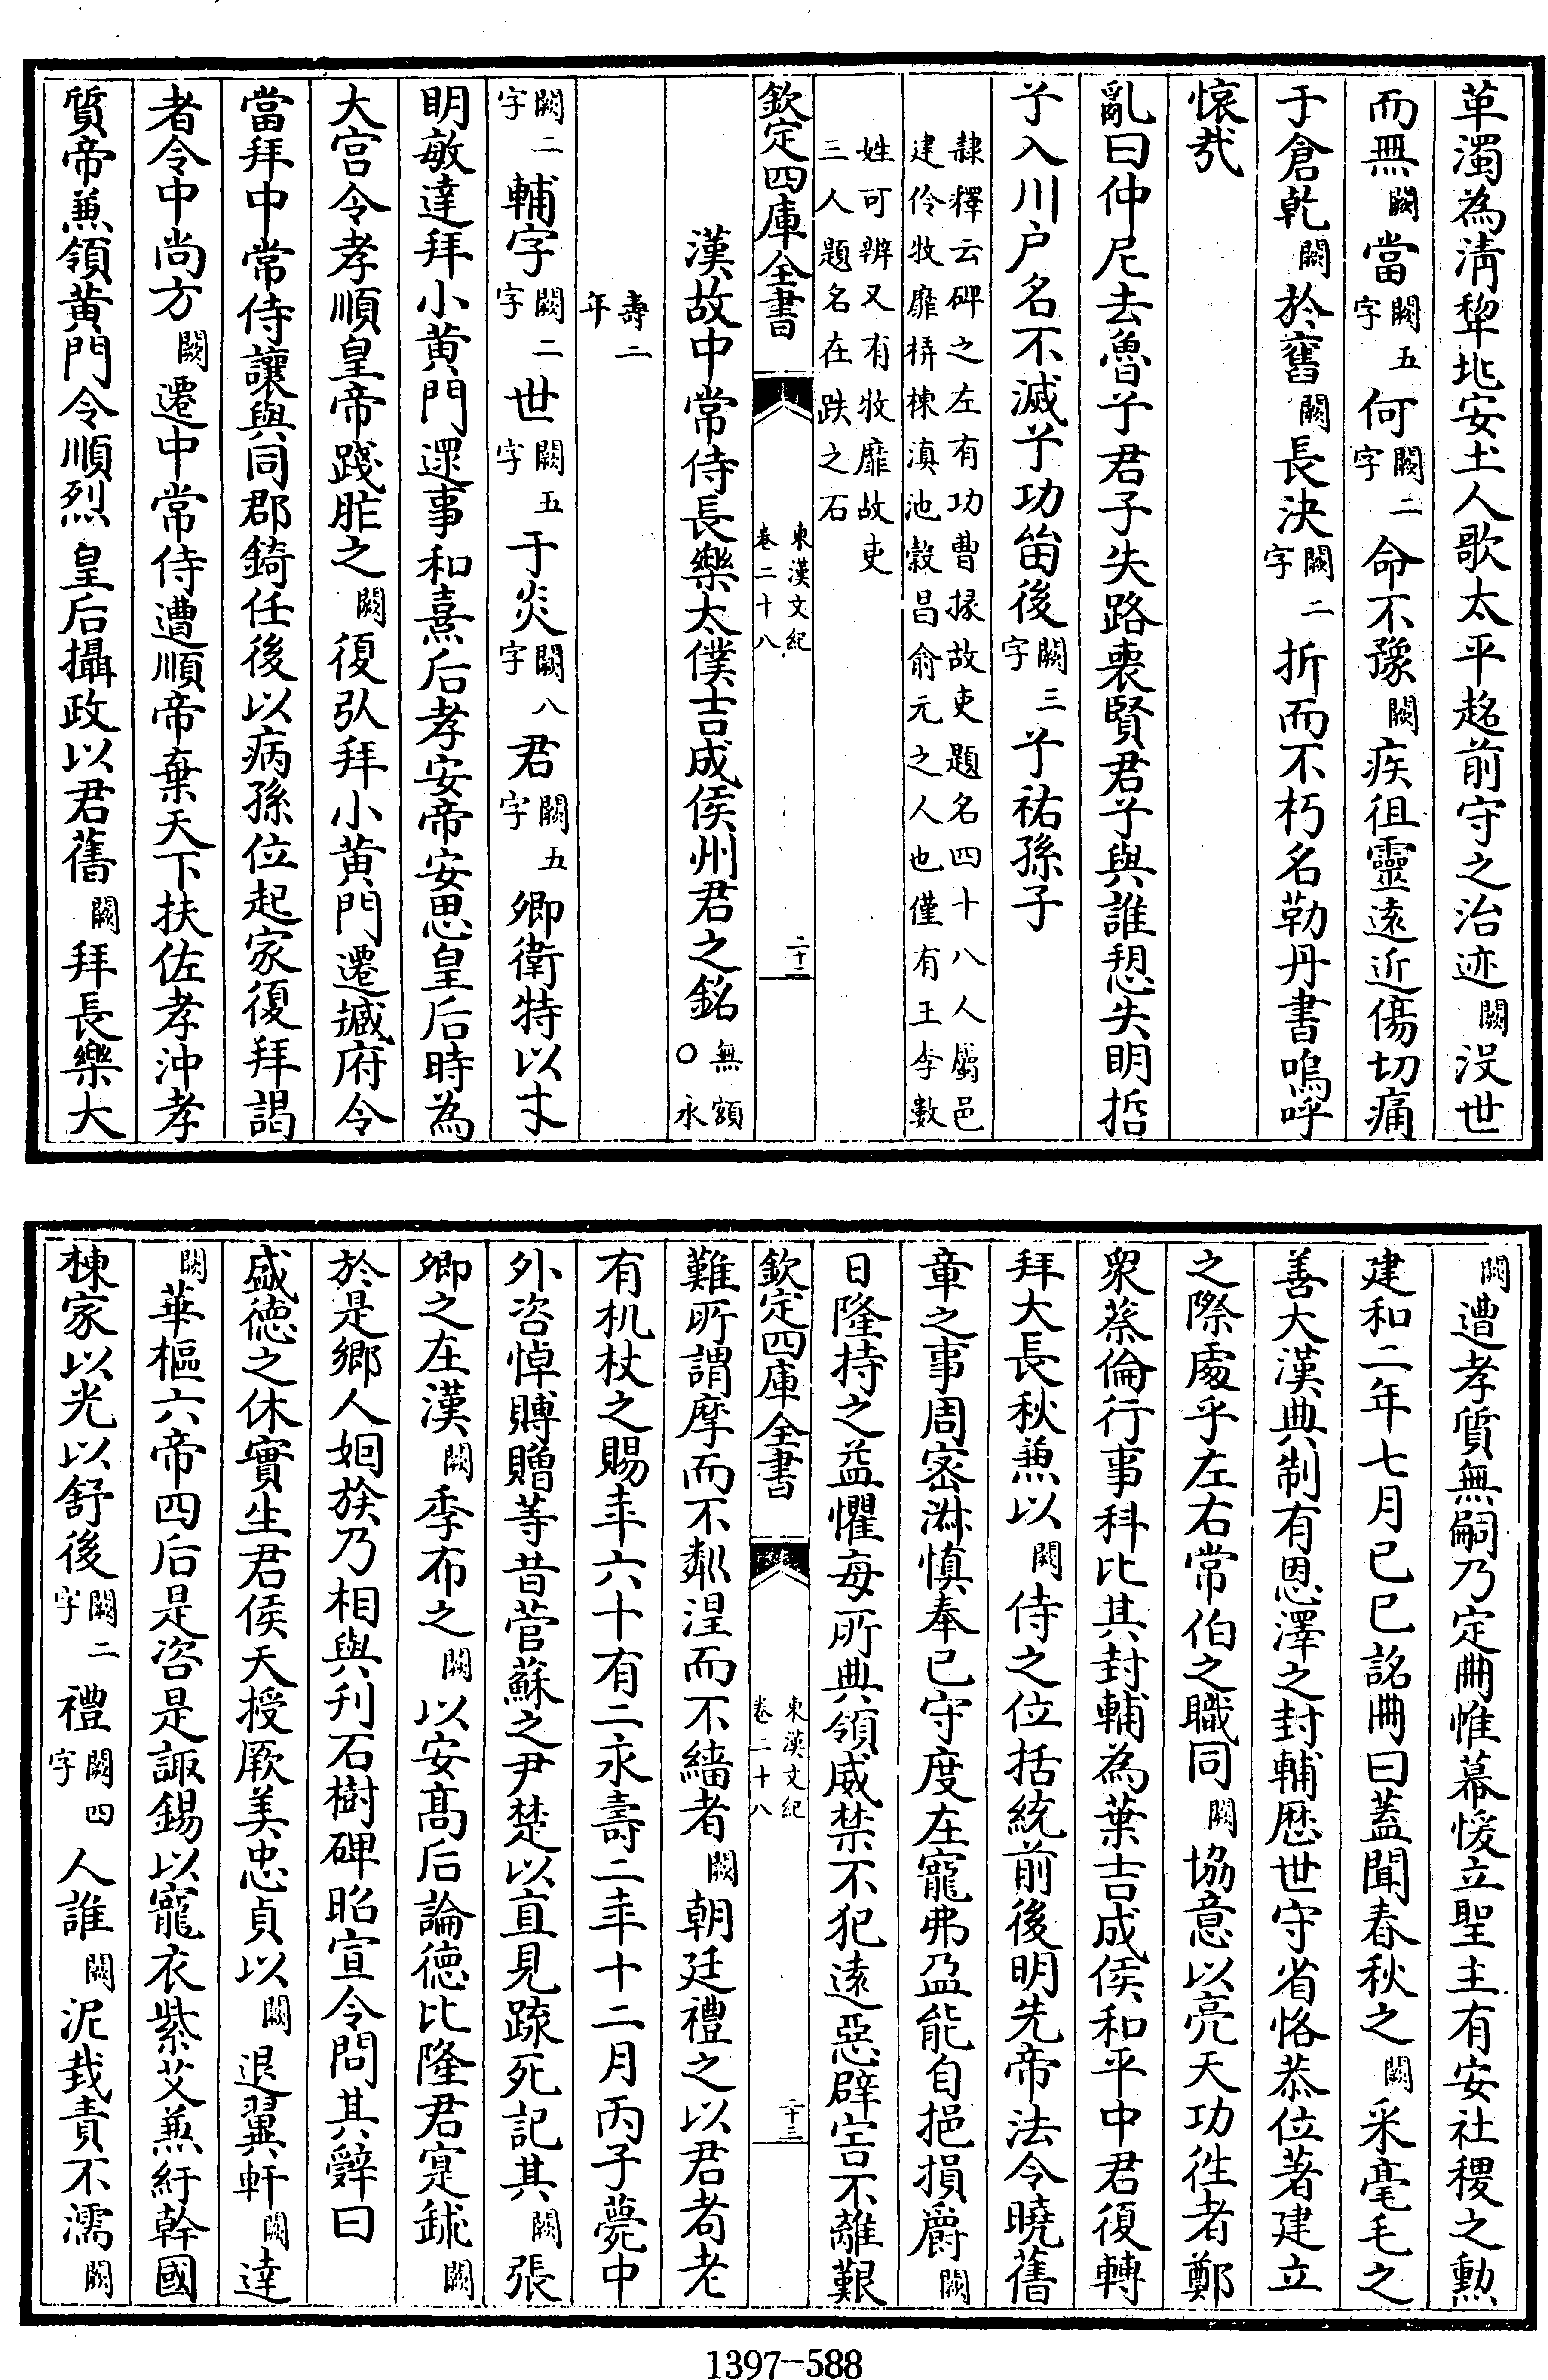 革濁為清犂北安土人歌太平超前守之治迹闕沒世
而無闕當闕五字何闕二字命不豫闕疾徂靈遠近傷切痛
于倉乾闕於舊闕長決闕二字折而不朽名勒丹書嗚呼
懷哉
亂曰仲尼去魯兮君子失路喪賢君子與誰愬失明哲
兮入川户名不滅兮功笛後闕三字兮祐孫子
隸釋云碑之左有功曹掾故吏題名四十八人屬邑
建伶牧靡梇棟滇池穀昌俞元之人也僅有王李數
姓可辨又有牧靡故吏
三人題名在跌之石
欽定四庫全書
東漢文紀
卷二十八
二十二
漢故中常侍長樂太僕吉成侯州君之銘無額○永
壽二年
闕二字輔字闕二字世闕五字于炎闕八字君闕五字卿衛特以才
明敏達拜小黄門還事和熹后孝安帝安思皇后時為
大官令孝順皇帝踐胙之闕復弘拜小黄門遷臧府令
當拜中常侍讓與同郡錡任後以病孫位起家復拜謁
者令中尚方闕遷中常侍遭順帝棄天下扶佐孝沖孝
質帝兼領黄門令順烈皇后攝政以君舊闕拜長樂大
闕遭孝質無嗣乃定冊惟幕援立聖主有安社稷之勳
建和二年七月己巳詔冊曰蓋聞春秋之闕采毫毛之
善大漢典制有恩澤之封輔歴世守省恪恭位著建立
之際處乎左右常伯之職同闕協意以亮天功徃者鄭
衆蔡倫行事科比其封輔為葉吉成侯和平中君復轉
拜大長秋兼以闕侍之位括統前後明先帝法令曉舊
章之事周宻淋慎奉已守度在寵弗盈能自挹損爵闕
日隆持之益懼每所典領威禁不犯遠惡辟害不離艱
欽定四庫全書
東漢文紀
卷二十八
二十三
難所謂摩而不粼涅而不緇者闕朝廷禮之以君耇老
有机杖之賜年六十有二永壽二年十二月丙子薨中
外咨悼賻贈等昔菅蘇之尹楚以直見疎死記其闕張
卿之在漢闕季布之闕以安髙后論徳比隆君寔銤闕
於是鄉人姻族乃相與刋石樹碑昭宣令問其辭曰
盛徳之休實生君侯天授厥美忠貞以闕退翼軒闕達
闕華樞六帝四后是咨是諏錫以寵衣紫艾兼紆幹國
棟家以光以舒後闕二字禮闕四字人誰闕泥我責不濡闕
1397-588